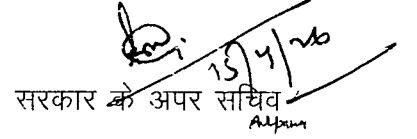 15/4/26
सरकार के अपर सचिव